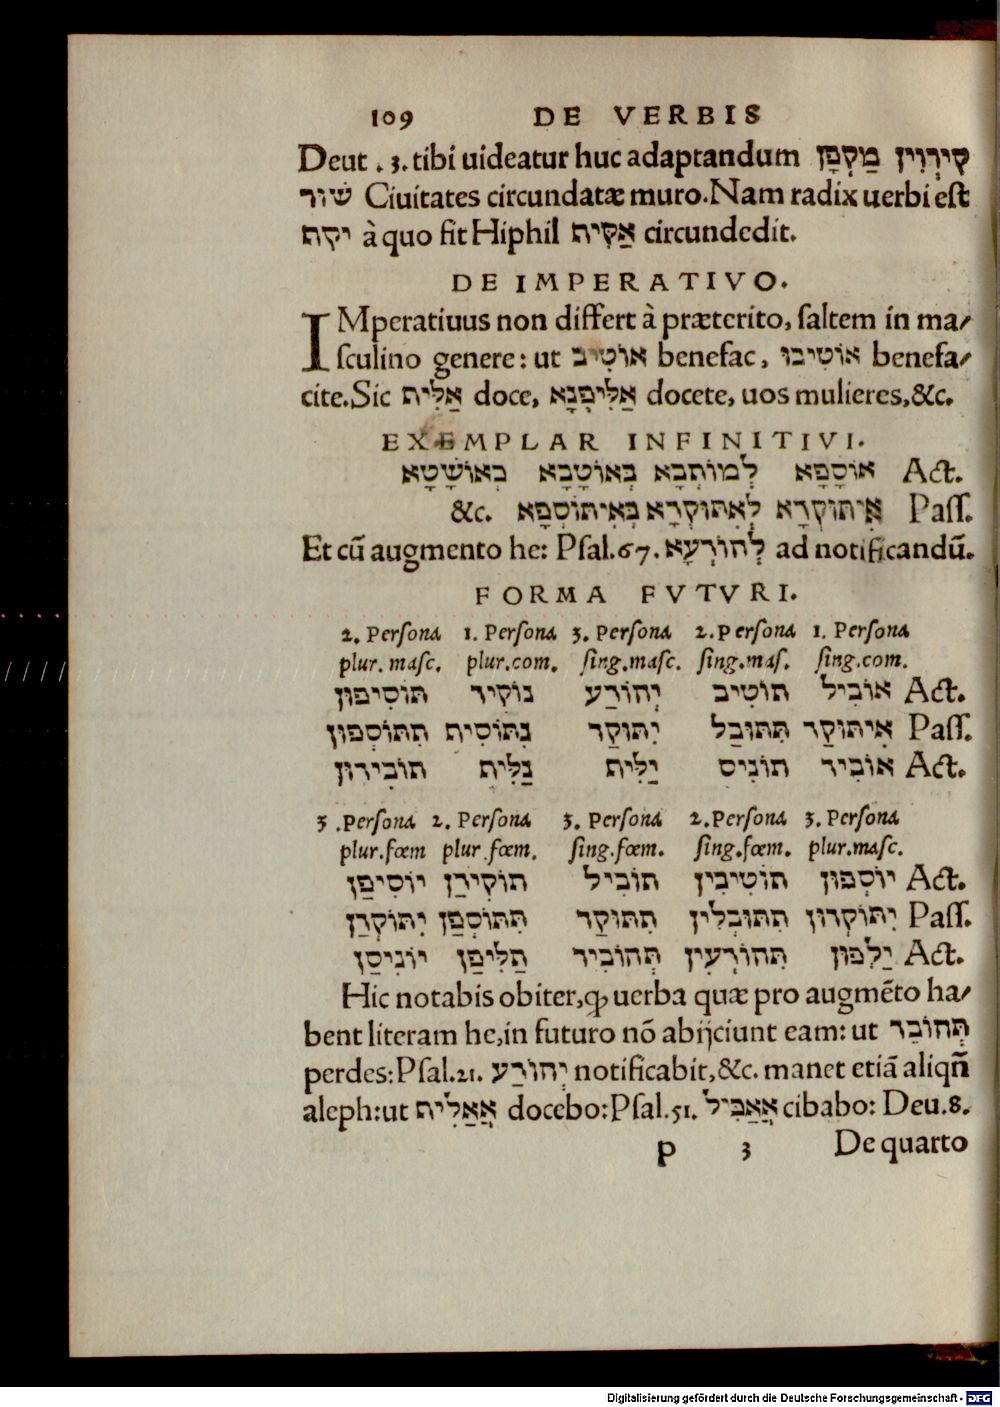 109 DE VERBIS
Deut . 3. tibi uideatur huc adaptandum קִירְוִין מַקְפָן
שׁוּר Ciuitates circundatæ muro. Nam radix uerbi est
יקח à quo fit Hiphil אַקִּיח circundedit.
DE IMPERATIVO.
IMperatiuus non differt à præterito, saltem in ma/
sculino genere: ut אוֹטִיב benefac, אוֹטִיבוּ benefa/
cite. Sic אַלִּית doce, אַלִּיפְנָא docete, uos mulieres, &c.
EXEMPLAR INFINITIVI.
אוֹסָפָא לְמוֹתְבָא בְּאוֹטָבָא בְאוֹשָׁטָא Act.
אִיתּוּקְרָא לְאִתּוּקְרָא בְּאִיתּוֹסְפָא &c. Pass.
Et cũ augmento he: Psal. 67. לְהוֹרְעָא ad notificandũ.
FORMA FVTVRI.
2. Persona 1. Persona 3. Persona 2. Persona 1. Persona
plur. masc. plur. com. sing. masc. sing. mas. sing. com.
אוֹבִיל תוֹטִיב יְהוֹרַע נוֹקִיר תּוֹסִיפוּן Act.
אִיתּוּקַר תִּתּוּבַל יִתּוּקַר נִתּוֹסִית תִתּוֹסְפוּן Pass.
אוֹבִיר תוֹנִיס יַלִּית נַלִּית תוֹבִירוּן Act.
3 . Persona 2. Persona 3. Persona 2. Persona 3. Persona
plur. fœm plur . fœm. sing. fœm. sing. fœm. plur. masc.
יוֹסְפוּן תוֹטִיבִין תוֹבִיל תוֹקִירַן יוֹסִיפַן Act.
יִתּוֹקְרוּן תִתּוּבְלִין תִתּוּקַר תִּתּוֹסְפַן יִתּוֹקְרַן Pass.
יַלְפוּן תְּהוֹרְעִין תְּהוֹבִיר תַלִּיפַן יוֹנִיסַן Act.
Hic notabis obiter, ꝙ uerba quæ pro augmẽto ha/
bent literam he, in futuro nõ abijciunt eam: ut תְּהוֹבֵר
perdes: Psal. 21. יְהוֹרַע notificabit, &c. manet etiã aliqñ
aleph: ut אֲאַלִּית docebo: Psal. 51. אֲאַבִּיל cibabo: Deu. 8.
p 3 De quarto
Digitalisierung gefördert durch die Deutsche Forschungsgemeinschaft - DFG